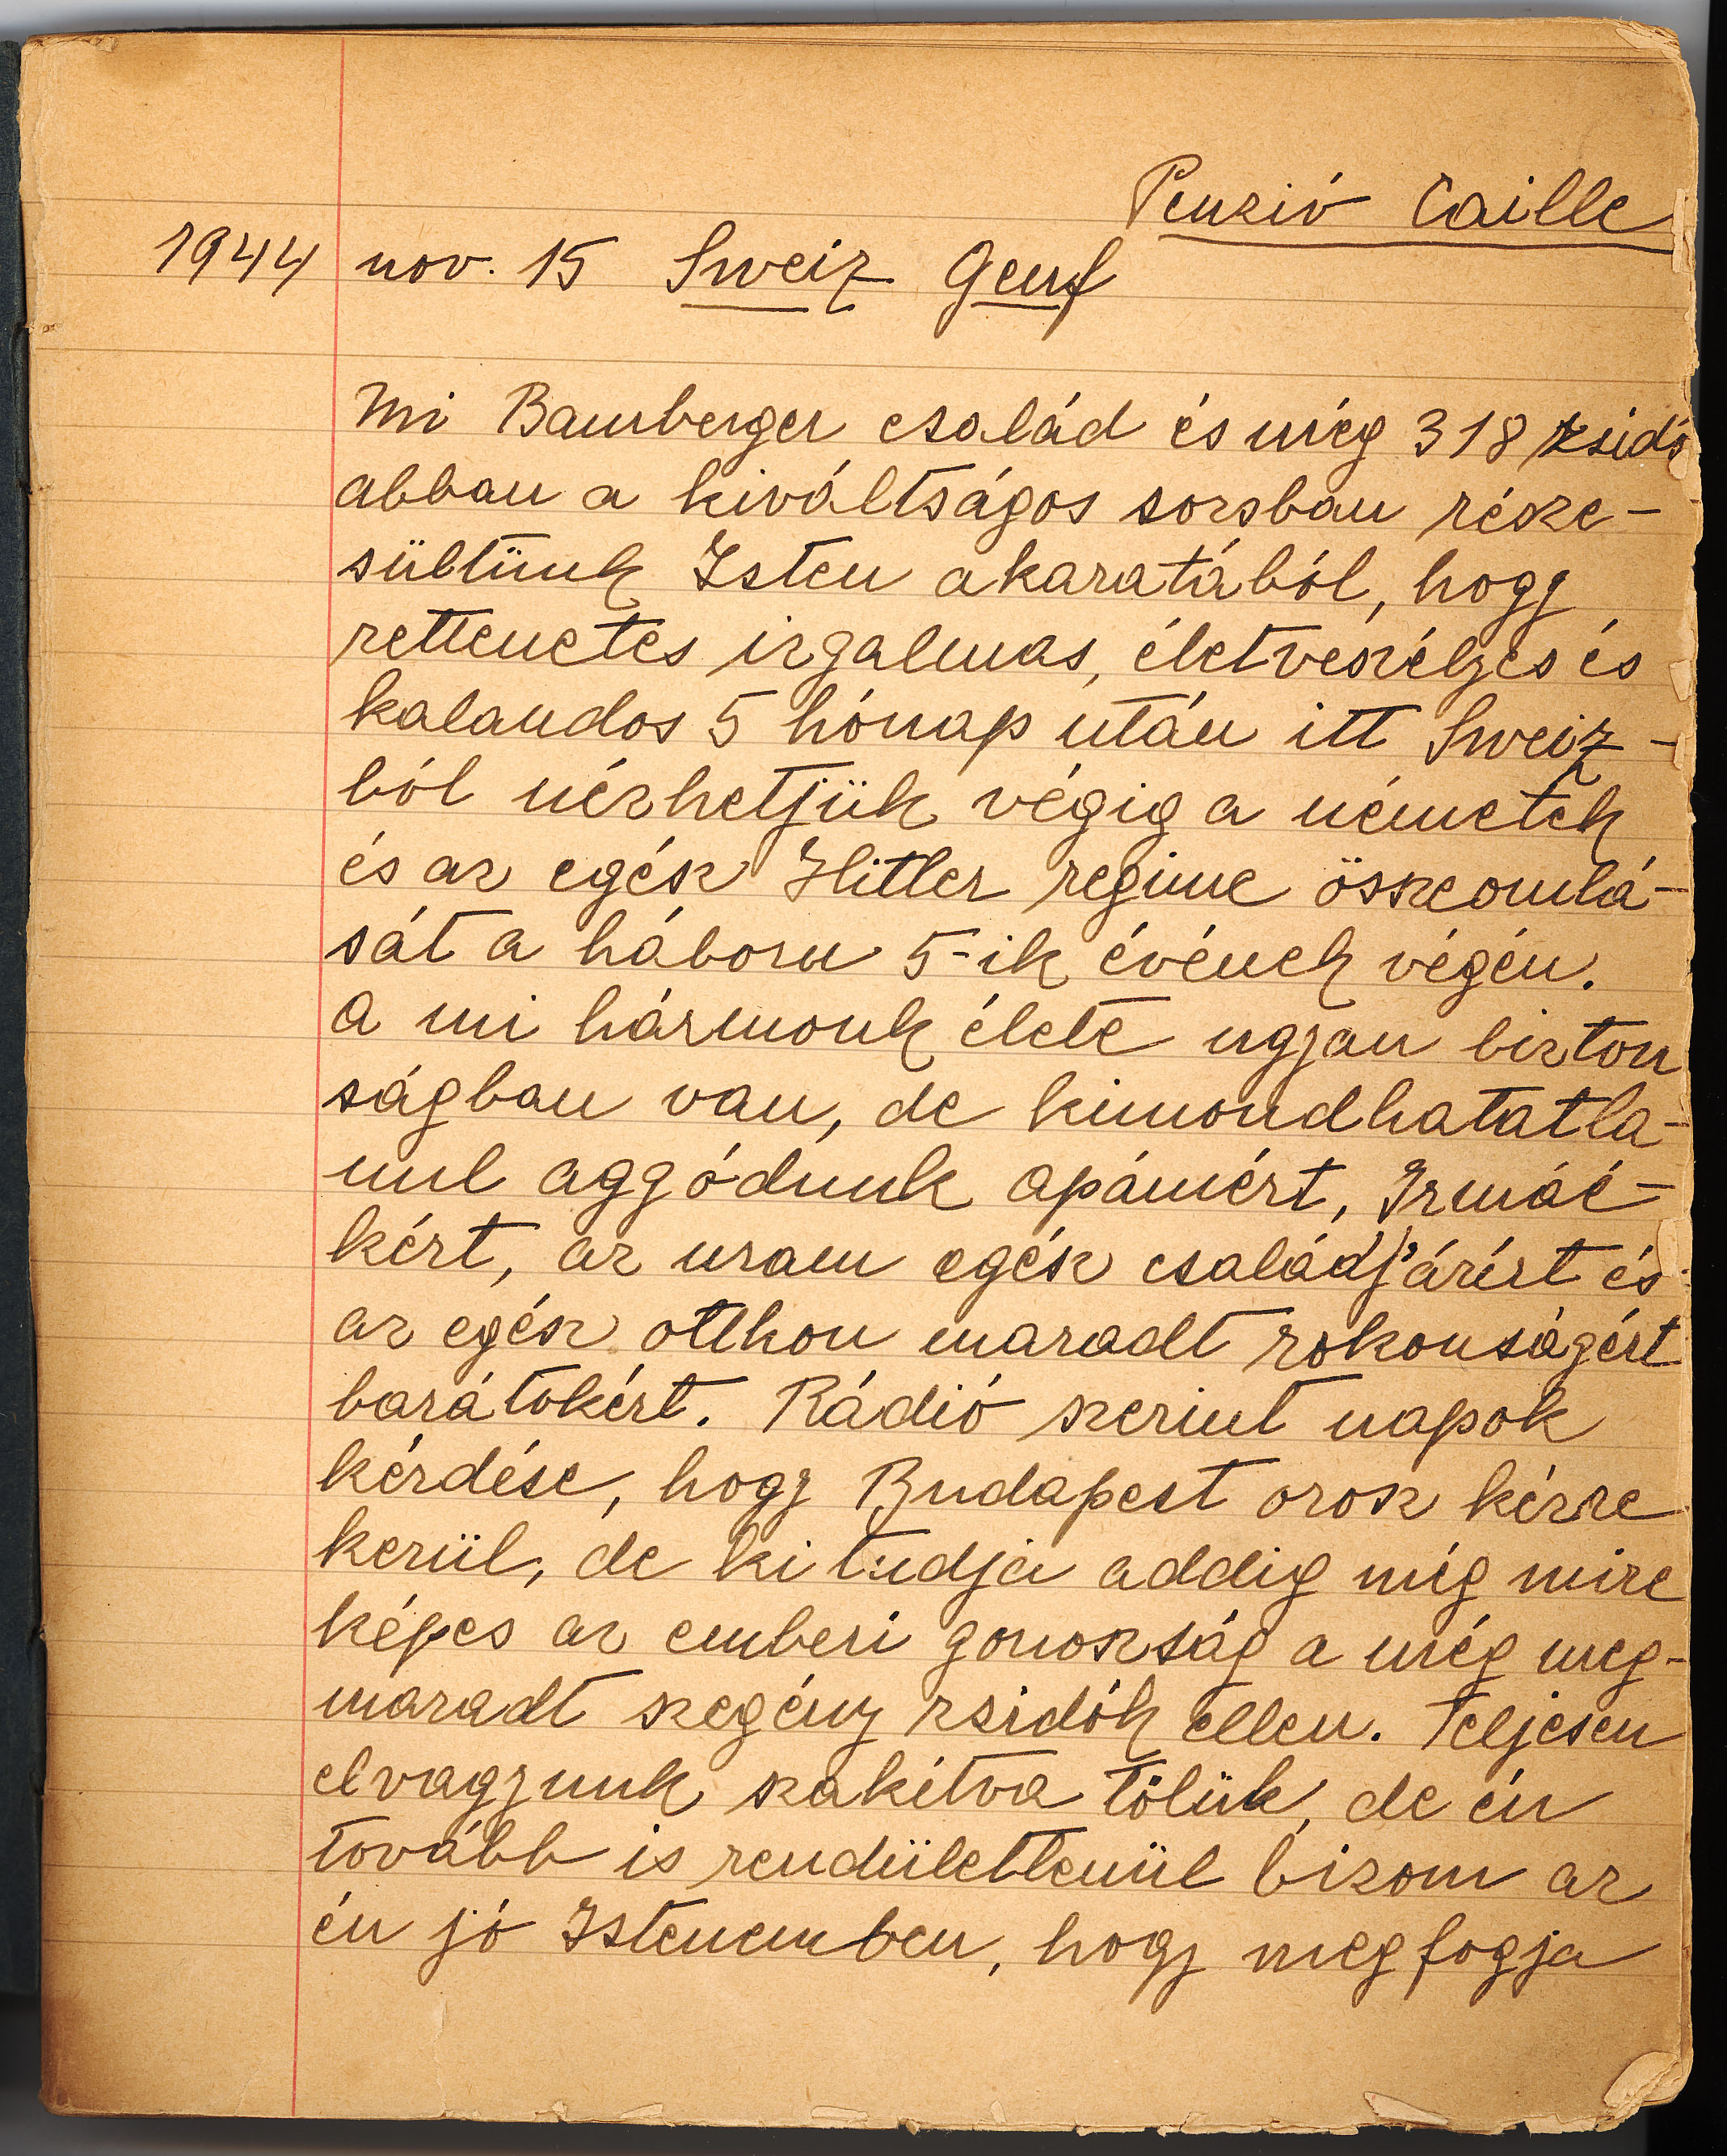 Penzió Caille
1944 nov. 15 Sweiz Genf
Mi Bamberger család és még 318 zsidó
abban a kiváltságos sorsban része-
sültünk Isten akaratából, hogy
rettenetes izgalmas, életveszélyes és
kalandos 5 hónap után itt Sweiz-
ból nézhetjük végig a németek
és az egész Hitler regime összeomlá-
sát a háboru 5-ik évének végén.
A mi hármonk élete ugyan bizton
ságban van, de kimondhatatla-
nul aggódunk apámért, Irmáé-
kért, az uram egész családjáért és
az egész otthon maradt rokonságért
barátokért. Rádió szerint napok
kérdése, hogy Budapest orosz kézre
kerül, de ki tudja addig még mire
képes az emberi gonoszság a még meg-
maradt szegény zsidók ellen. Teljesen
el vagyunk szakítva tőlük, de én
tovább is rendületlenül bizom az
én jó Istenemben, hogy meg fogja